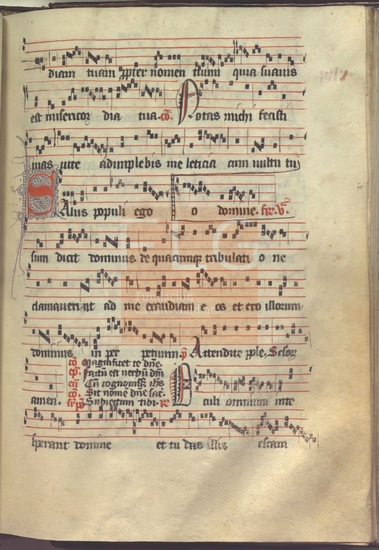 diam tuam ppter nomen tuum quia suavis
est misericor dia tua. co. Notas michi fecisti
vias vite adimplebis me leticia cum vultu tu
Salus populi ego o domine.
sum dicit dominus de quacumque tribulati o ne
clamaverint ad me exaudiam e os et ero illorum
dominus in per petuum. p Attendite pple. Seculor
amen. Magnificet te dne.
Factum est verbum dni
Cum cognovisset ihs
Sit nome dni
Subiectum tibi. Oculi omnium in te
sperant domine et tu das illis escam